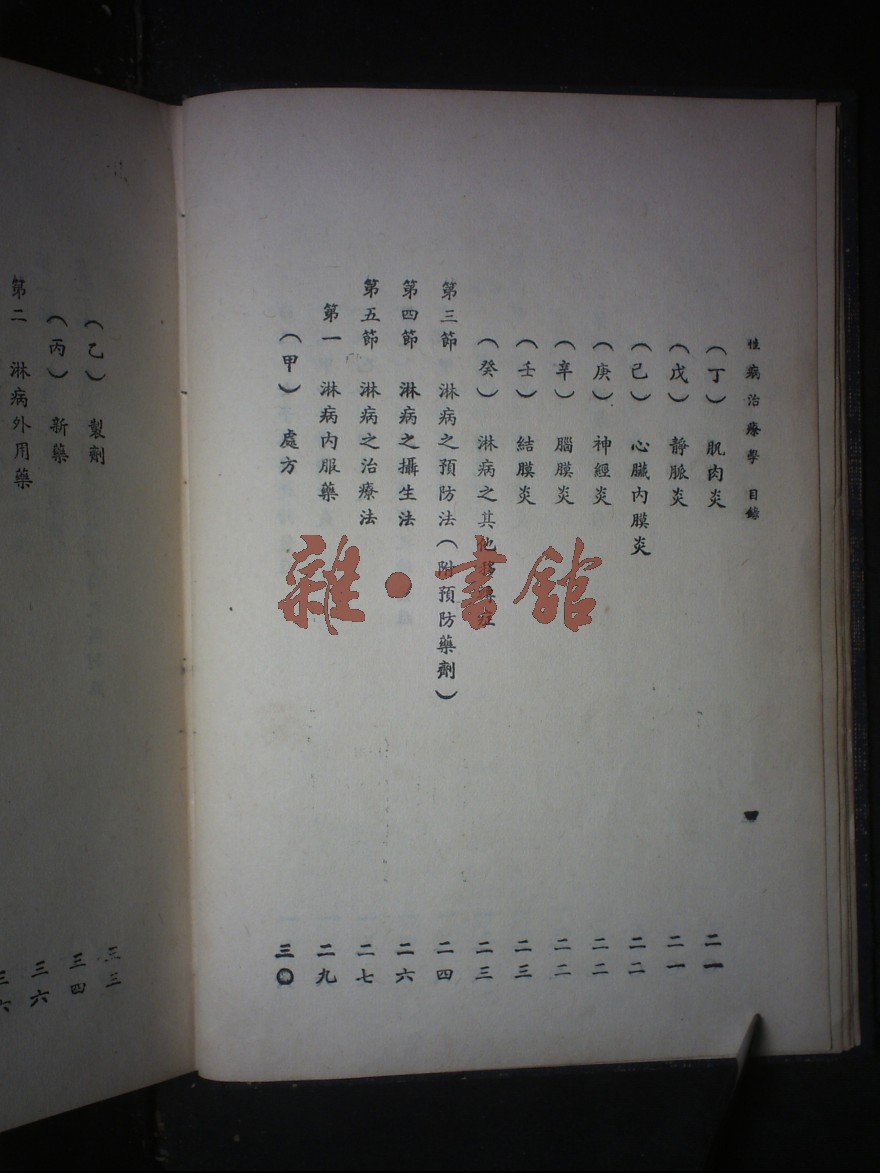 性病治療學 目錄
(丁) 肌肉炎 二一
(戊) 靜脈炎 二一
(已) 心臟內膜炎 二二
(庚) 神經炎 二二
(辛) 腦膜炎 二二
(壬) 結膜炎 二三
(癸) 淋病之其他移症 二三
第三節 淋病之預防法(附預防藥劑) 二四
第四節 淋病之攝生法 二六
第五節 淋病之治療法 二七
第一 淋病內服藥 二九
(甲) 處方 三〇
(乙) 製劑 三三
(丙) 新藥 三四
第二 淋病外用藥 三六
三六
雜·書館